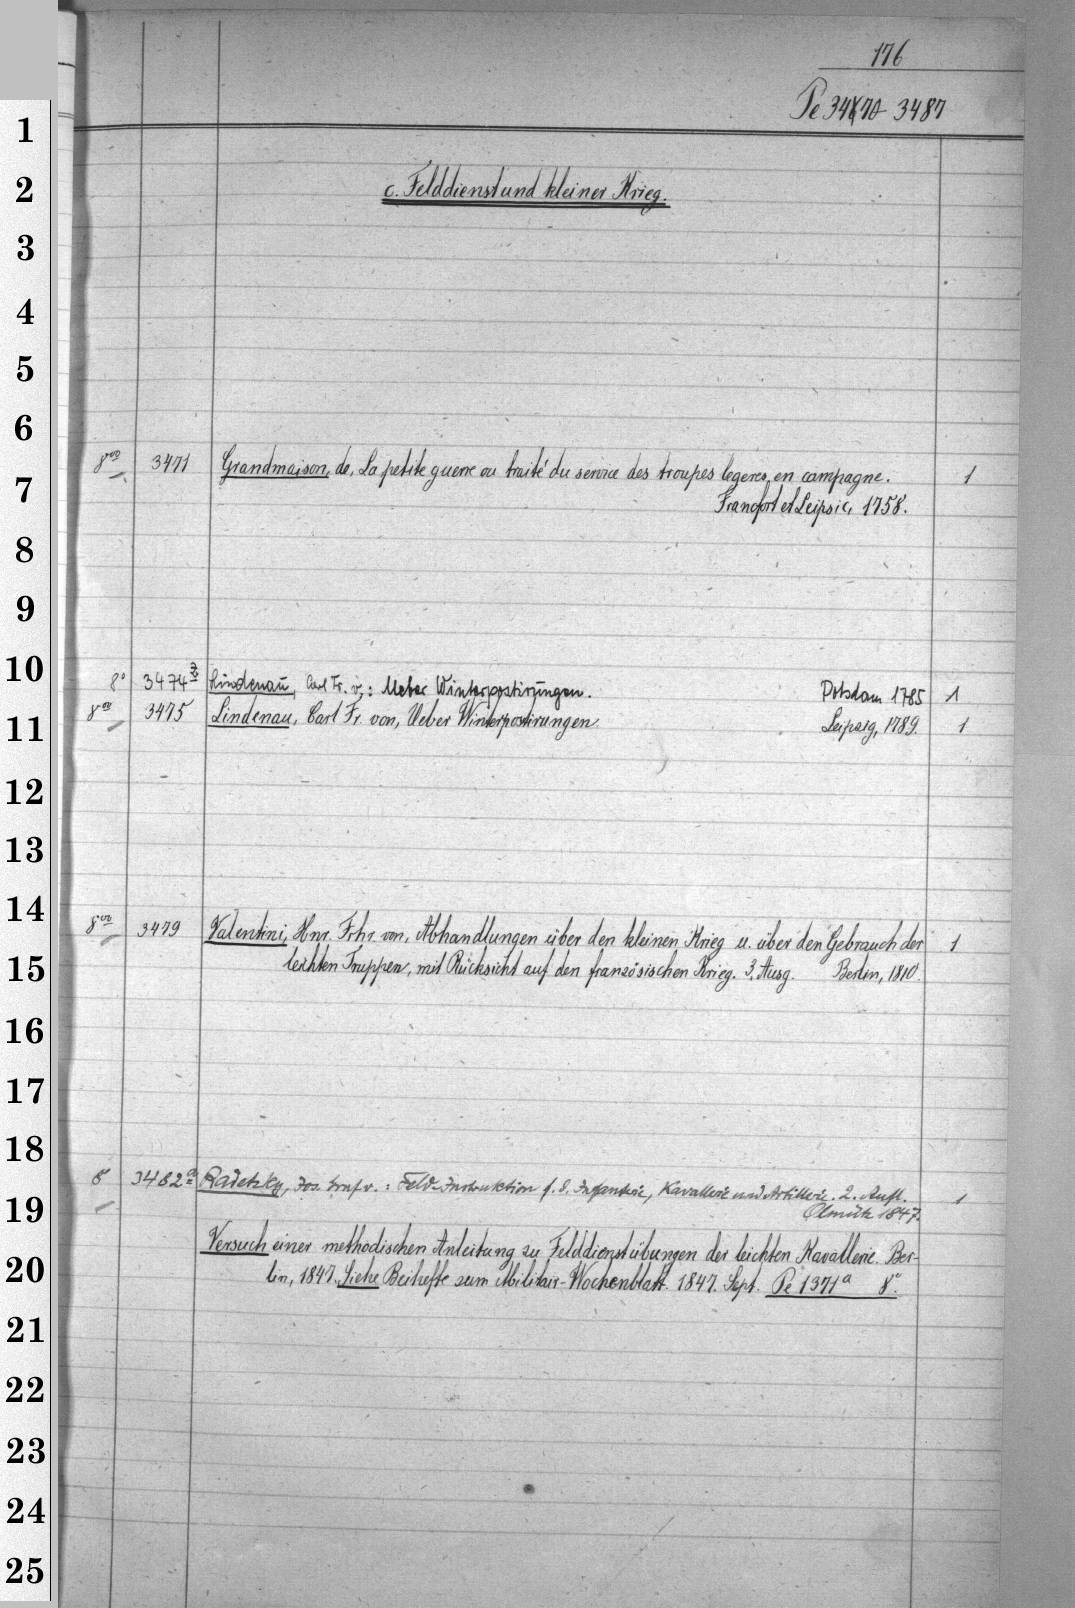 176
Pe 3470 3487
1
2
3
4
5
6
7
8
9
10
11
12
13
14
15
16
17
18
19
20
21
22
23
24
25
c. Felddienst und kleiner Krieg.
8vo 3471 Grandmaison, de, La petite guerre ou traité du service des troupes legeres en campagne. 1
Francfort et Leipsic, 1758.
8° 3474z Lindenau, Carl Fr. v.: Ueber Winterpostirungen. Potsdam 1785 1
8vo 3475 Lindenau, Carl Fr. von, Ueber Winterpostirungen. Leipzig, 1789. 1
8vo 3479 Valentini, Hnr. Frhr. von, Abhandlungen über den kleinen Krieg u. über den Gebrauch der 1
leichten Truppen, mit Rücksicht auf den französischen Krieg. 3. Ausg. Berlin, 1810.
8° 3482a Radetzky, Jos. Graf v.: Feld-Instruktion f. d. Infanterie, Kavallerie und Artillerie. 2. Aufl. 1
Olmütz 1847.
Versuch einer methodischen Anleitung zu Felddienstübungen der leichten Kavallerie. Ber-
lin, 1847. Siehe Beihefte zum Militair-Wochenblatt. 1847. Sept. Pe 1371a 8°.